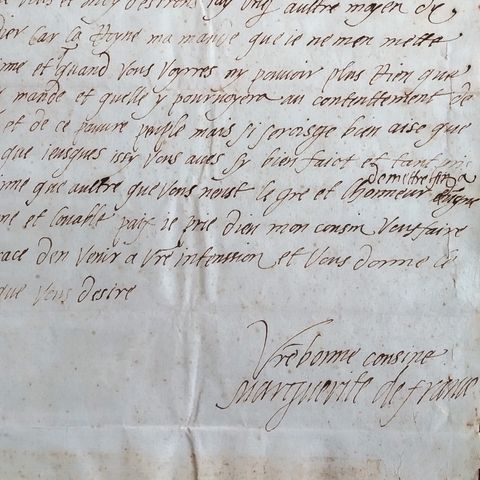 a vous et moy desirons jay ung aultre moyen de
dier car la Royne ma mande que ie ne men mette
inne et quand vous voyrres ny pouvoir plus Rien que
mande et quelle y pourvoyera au contentement de
et de ce pauvre peuple mais si seroisge bien aise que
que iusques issy vous aves sy bien faict et tant
inne que aultre que vous neust le gre et lhonneur
de mettre fin a
ne et louable paix ie prie dieu mon cousin vous faire
ace den venir a vre intenssion et vous donne ce
que vous desire
Vre bonne consine
marguerite de france